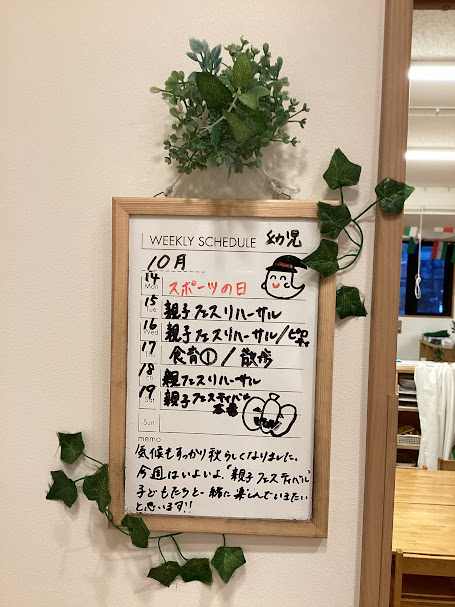 WEEKLY SCHEDULE 幼児
10月
14 Mon スポーツの日
15 Tue 親子フェスリハーサル
16 Wed 親子フェスリハーサル/ピロポロ
17 食育① / 散歩
18 Fri 親フェスリハーサル
19 Sat 親子フェスティバル
本番
Sun
memo
気候もすっかり秋らしくなりました。
今週はいよいよ、"親子フェスティバル"
子どもたちと一緒に楽しんでいきたい
と思います!!